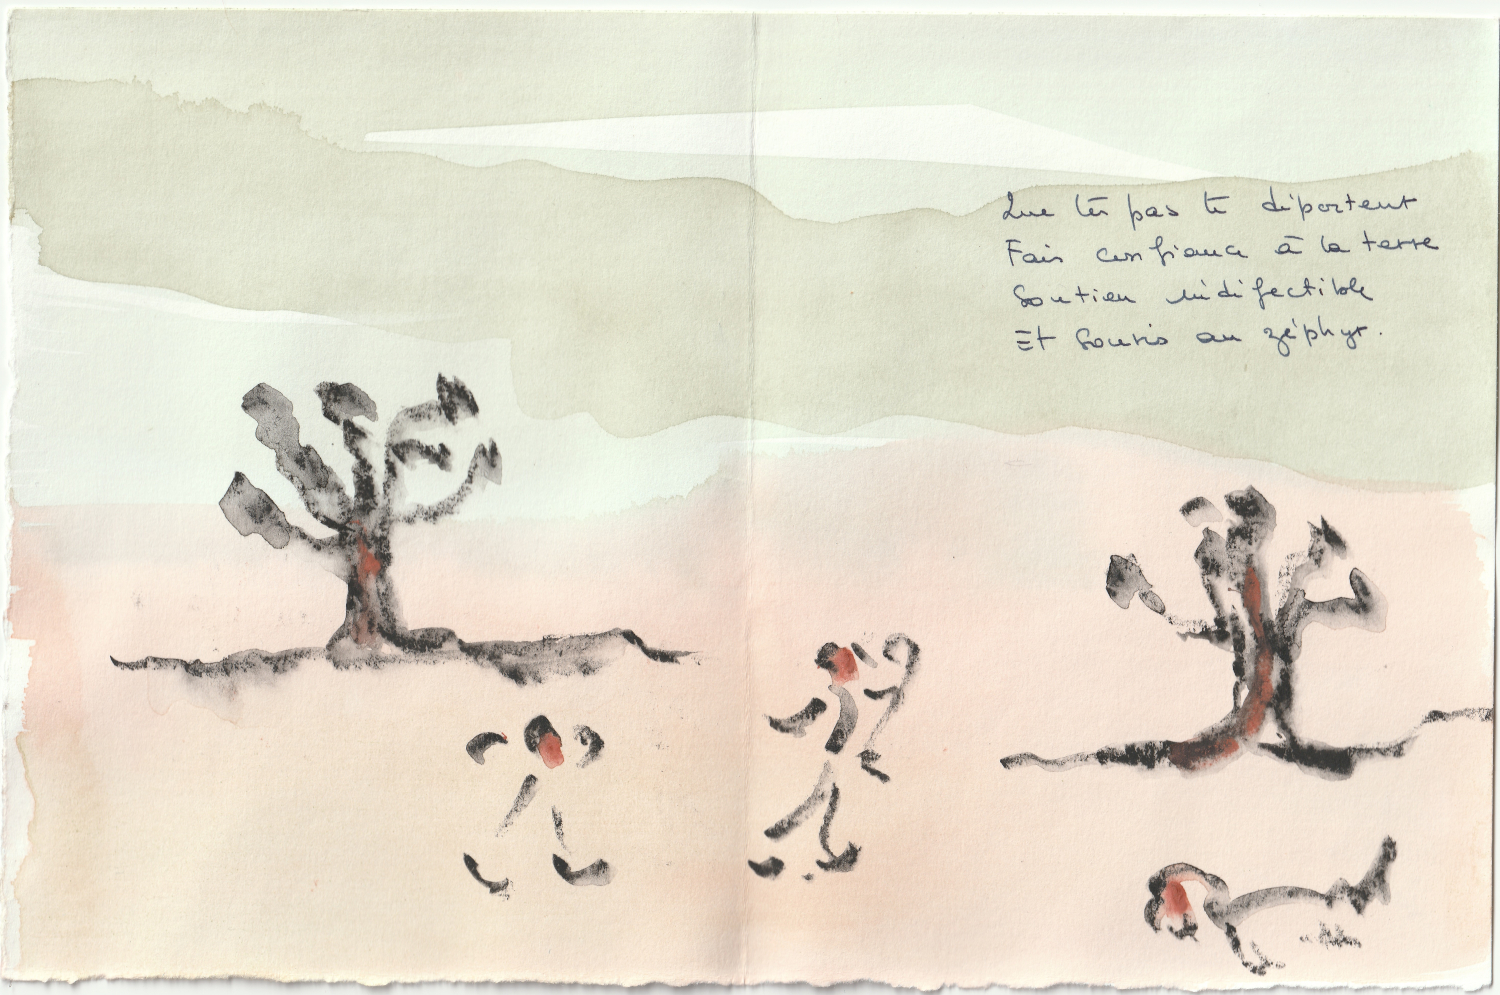 Que tes pas te déportent
Fais confiance à la terre
Soutien indéfectible
Et souris au zéphyr.